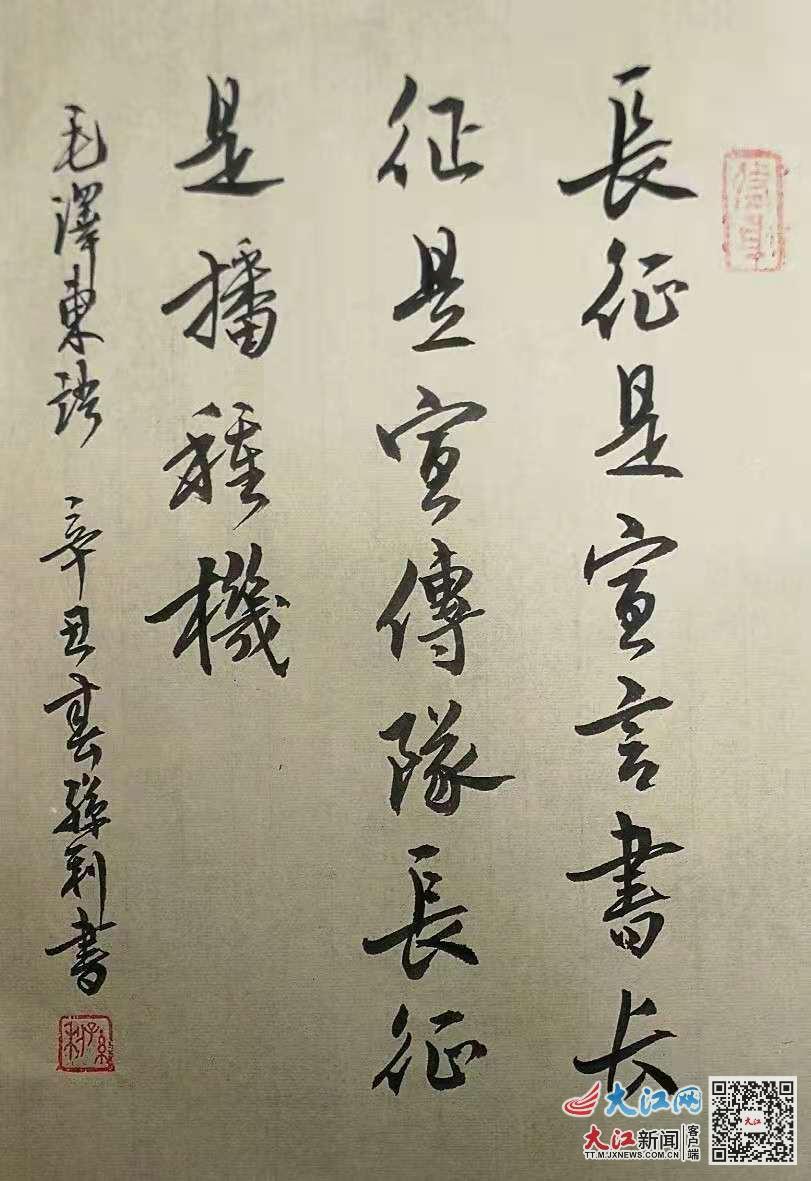 長征是宣言書长
征是宣傳隊長征
是播種機
毛澤東語 辛丑春孫利書
大江网
大江新闻 客户端
TT.M.JXNEWS.COM.CN
大江